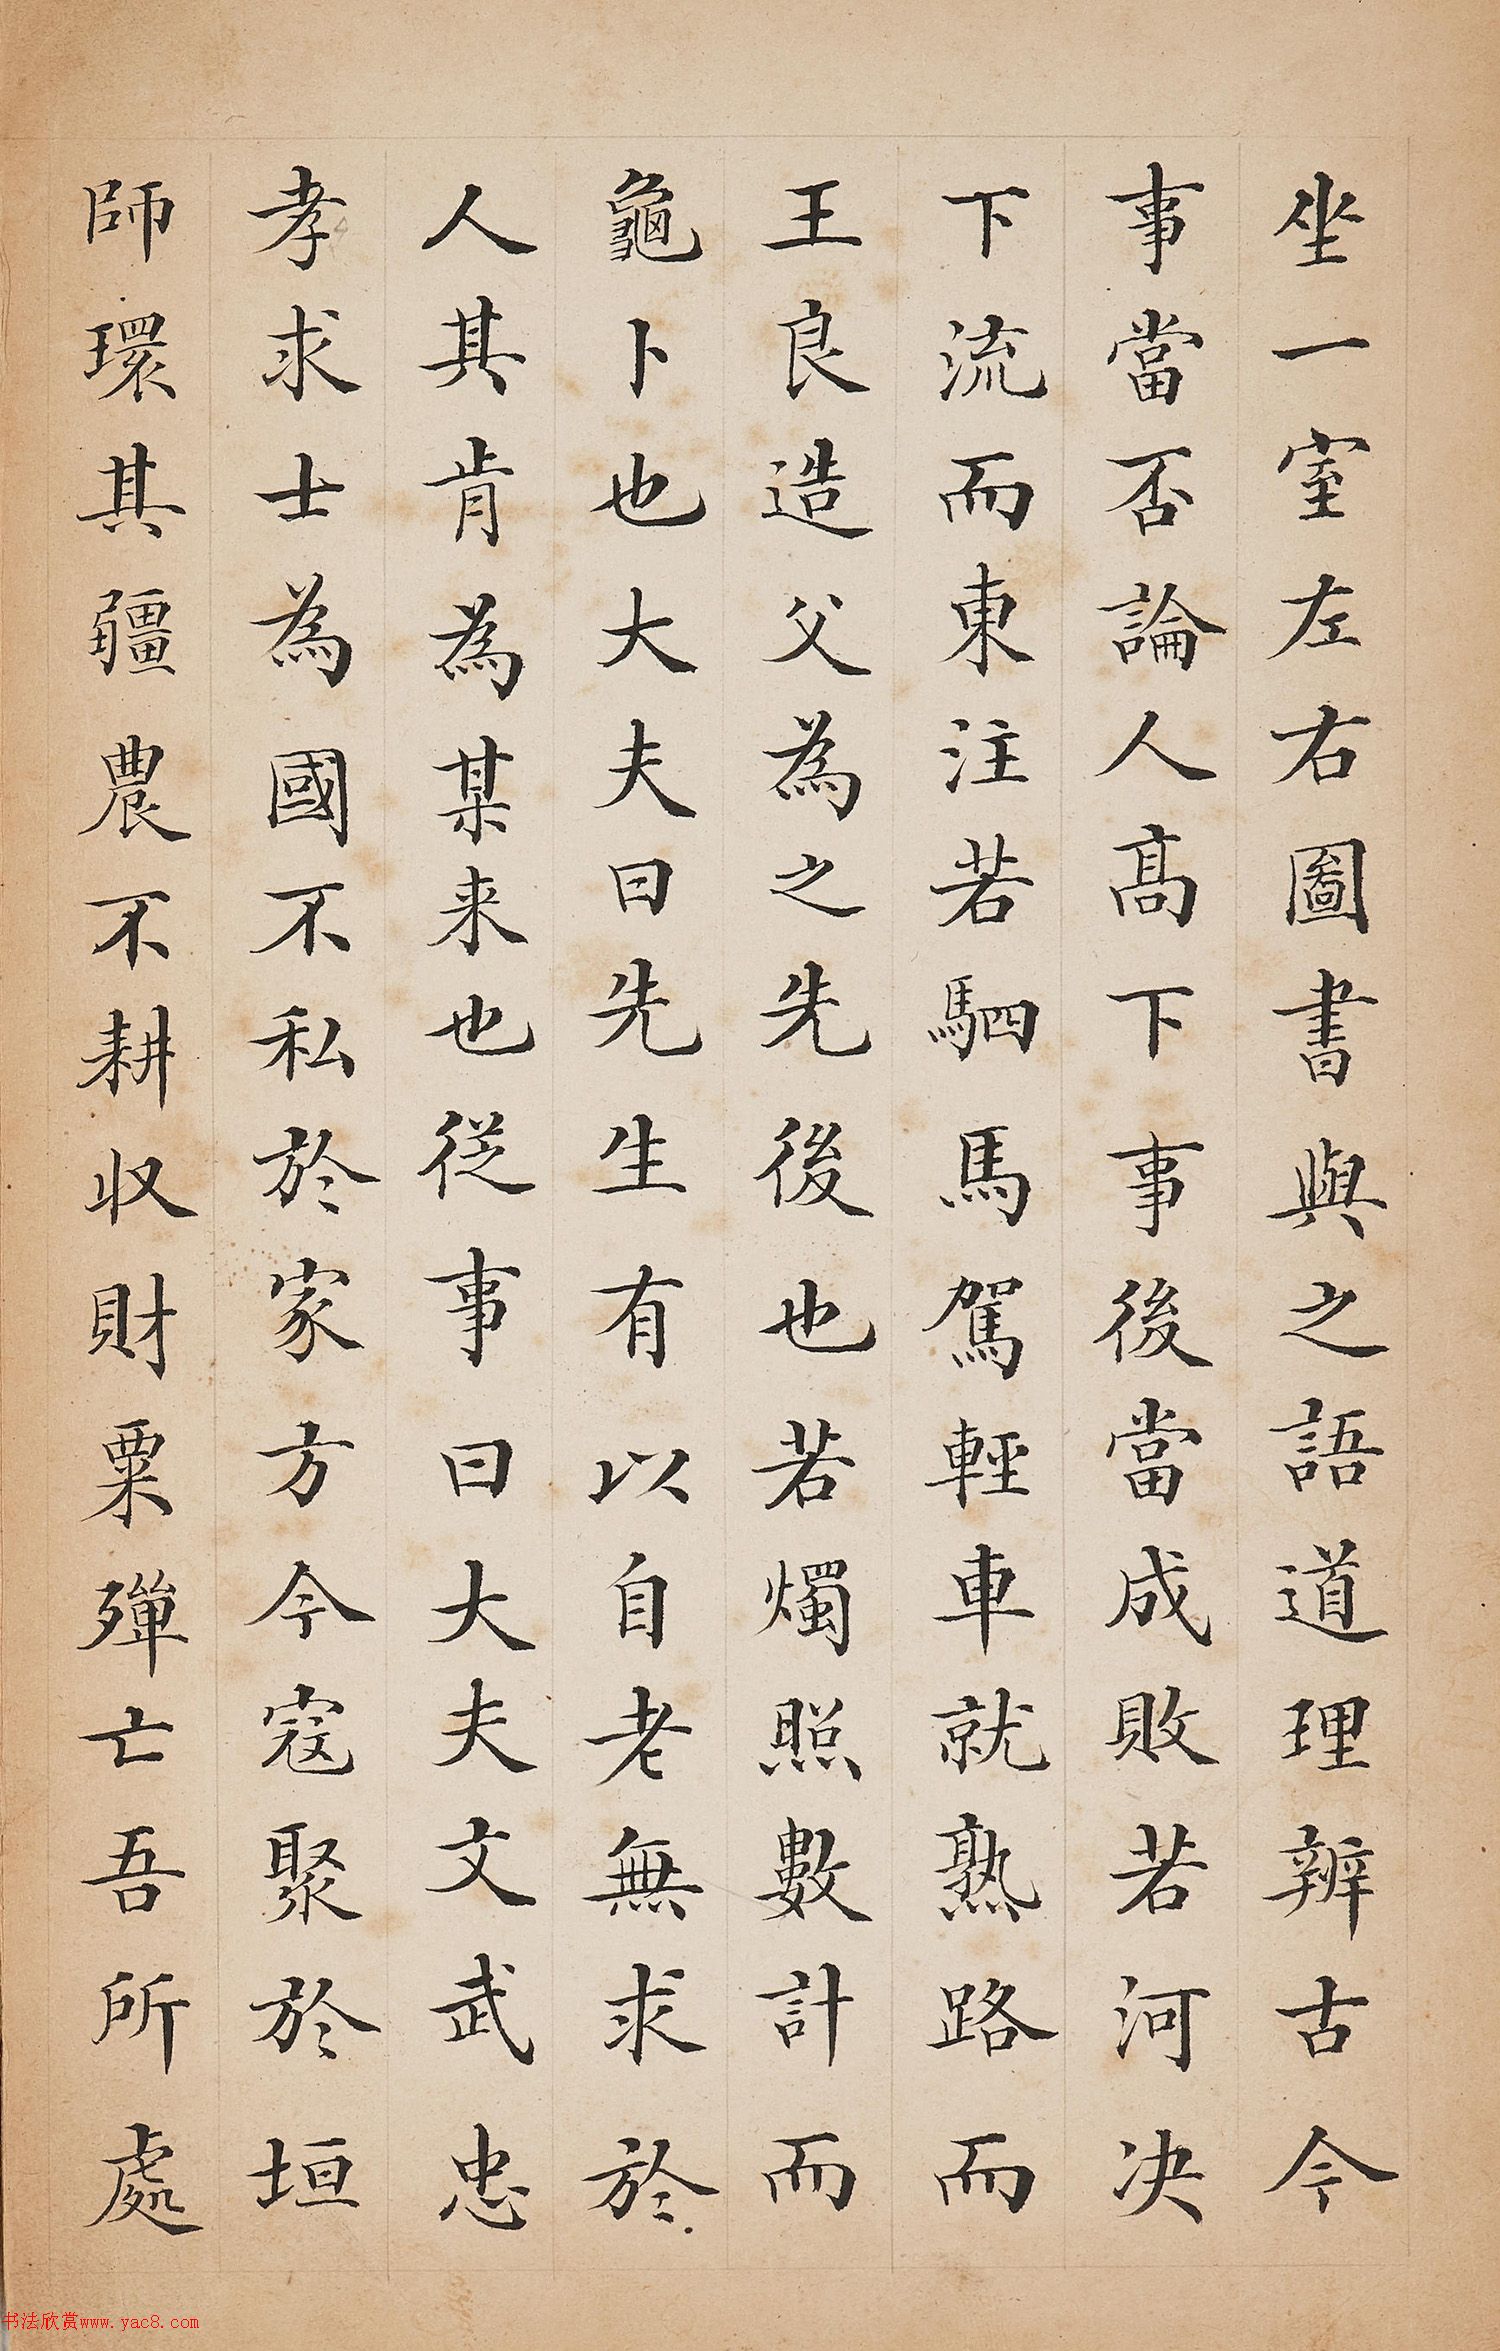 坐一室左右圖書與之語道理辨古今
事當否論人高下事後當成敗若河決
下流而東注若駟馬駕輕車就熟路而
王良造父為之先後也若燭照數計而
龜卜也大夫曰先生有以自老無求於
人其肯為某来也従事曰大夫文武忠
孝求士為國不私於家方今寇聚於垣
師環其疆農不耕收財粟殫亡吾所處
书法欣赏www.yac8.com